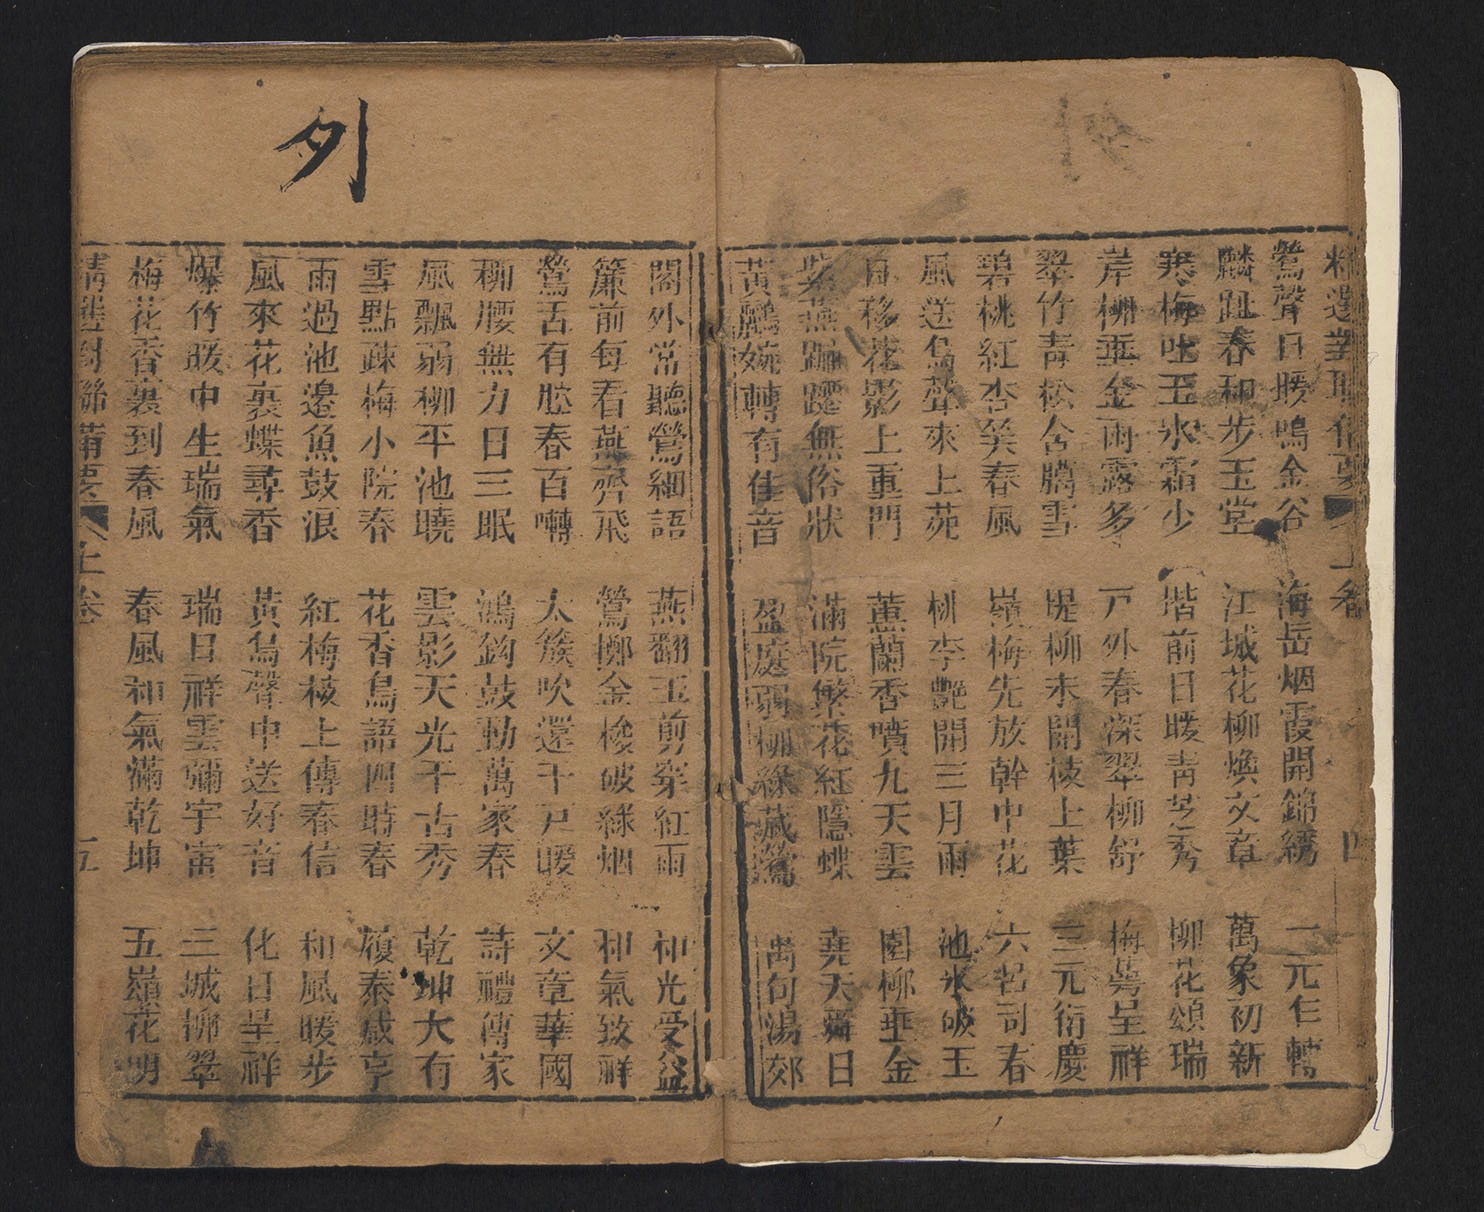 鶯聲日暖鳴金谷 海岳烟霞開錦綉 一元七轉
麟趾春和步玉堂 江城花柳煥文章 萬象初新
寒梅吐玉氷霜少 堦前日暖青芝秀 柳花頌瑞
岸柳垂金雨露多 戸外春深翠柳舒 梅萼呈祥
翠竹青松含臈雪 堤柳未開枝上葉 三元衍慶
碧桃紅杏笑春風 嶺梅先放幹中花 六呂司春
風送鳥聲來上苑 桃李艷開三月雨 池氷破玉
日移花影上重門 蕙蘭香噴九天雲 園柳垂金
紫燕蹁躚無俗狀 滿院繁花紅隱蝶 堯天舜日
黃鸝婉轉有佳音 盈庭弱柳綠藏鶯 禹甸湯郊
列
閣外常聽鶯細語 燕翻玉剪穿紅雨 神光受益
簾前每看燕齊飛 鶯擲金梭破綠烟 和氣致祥
鶯舌有腔春百囀 太簇吹還千戸暖 文章華國
柳腰無力日三眠 鴻鈞鼓動萬家春 詩禮傳家
風飄弱柳平池曉 雲影天光千古秀 乾坤大有
雪點疎梅小院春 花香鳥語四時春 履泰咸亨
雨過池邊魚鼓浪 紅梅枝上傳春信 和風暖步
風來花裏蝶尋香 黃鳥聲中送好音 化日呈祥
爆竹暖中生瑞氣 瑞日祥雲彌宇宙 三城柳翠
梅花香裏到春風 春風和氣滿乾坤 五嶺花明
精選對聯備要 上卷 五